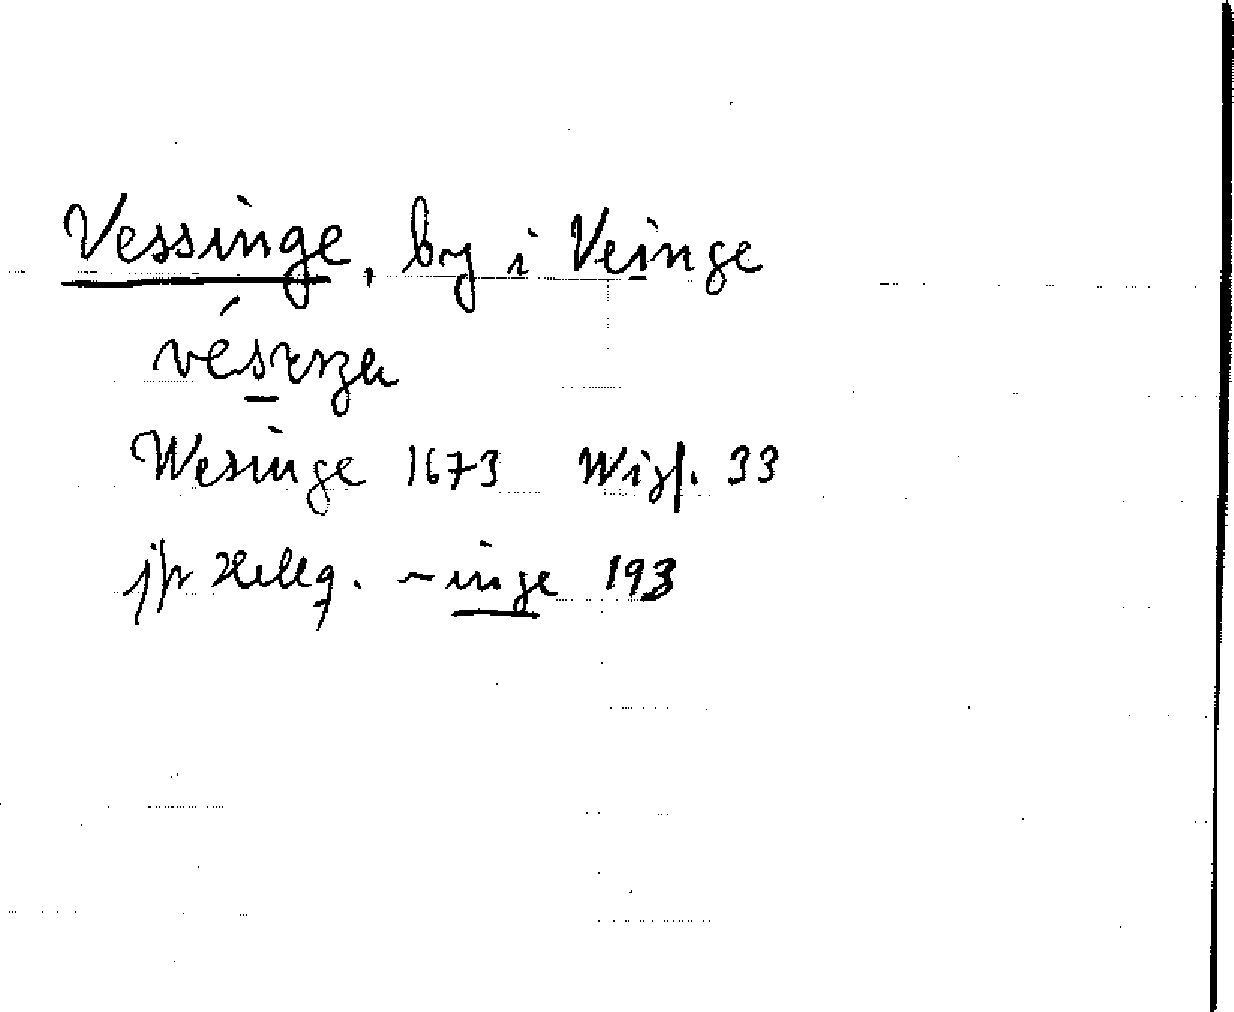 Vessinge, by i Veinge
Wesinge 1673 Wizf. 33
jfr Hellq. -inge 193